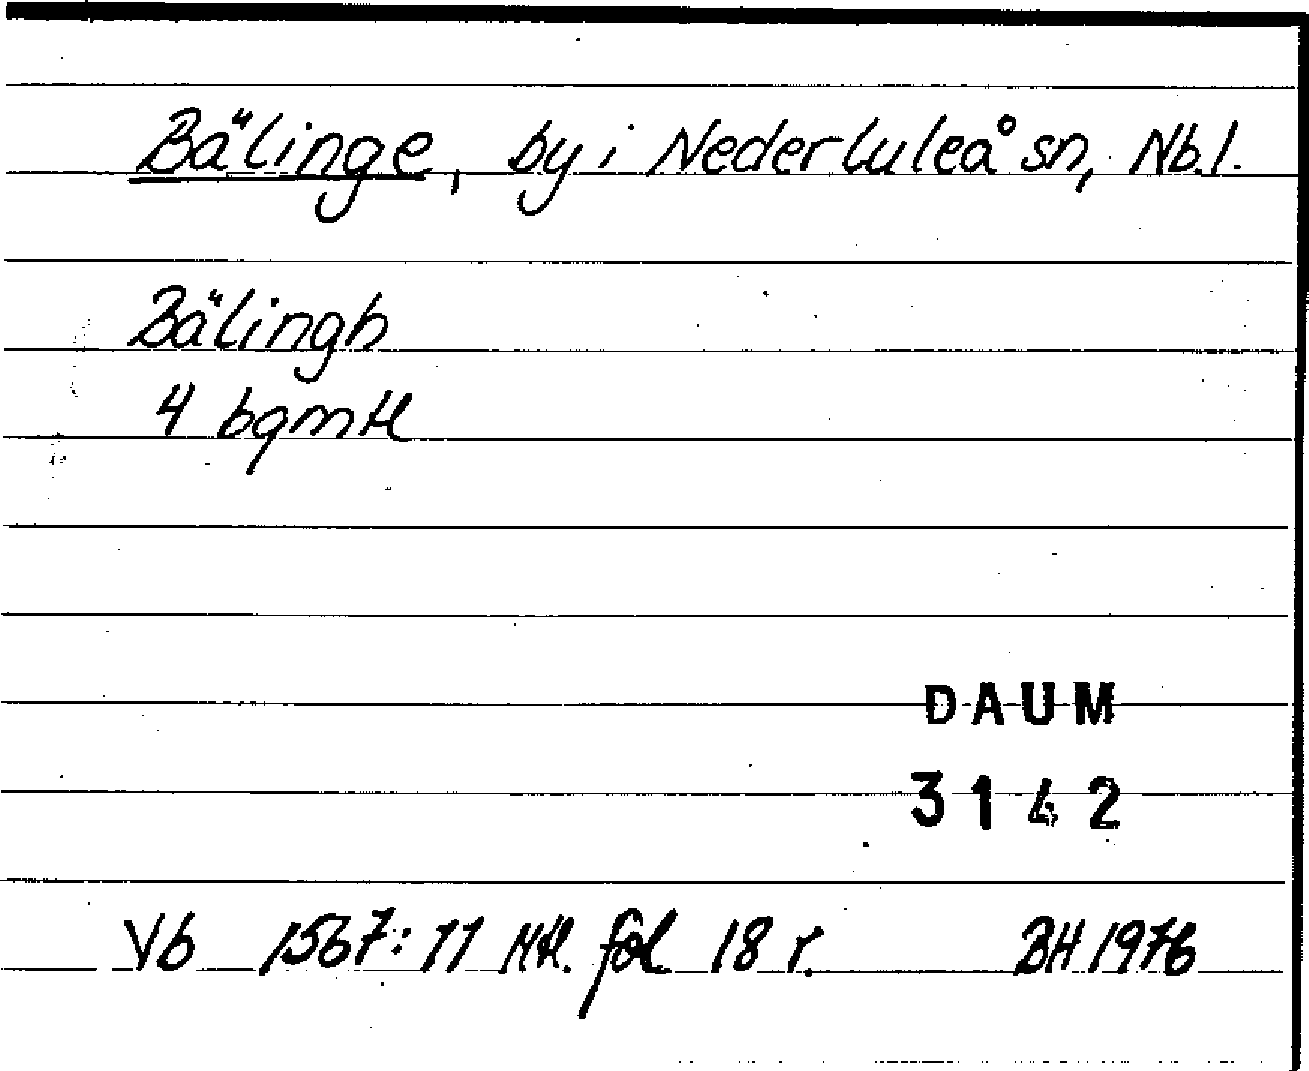 Bälinge, by i Nederluleå sn, Nb.l.
Bälingh
4 bgmtl
DAUM
3142
Vb 1567:11 Mtl. fol 18 r. BH 1976